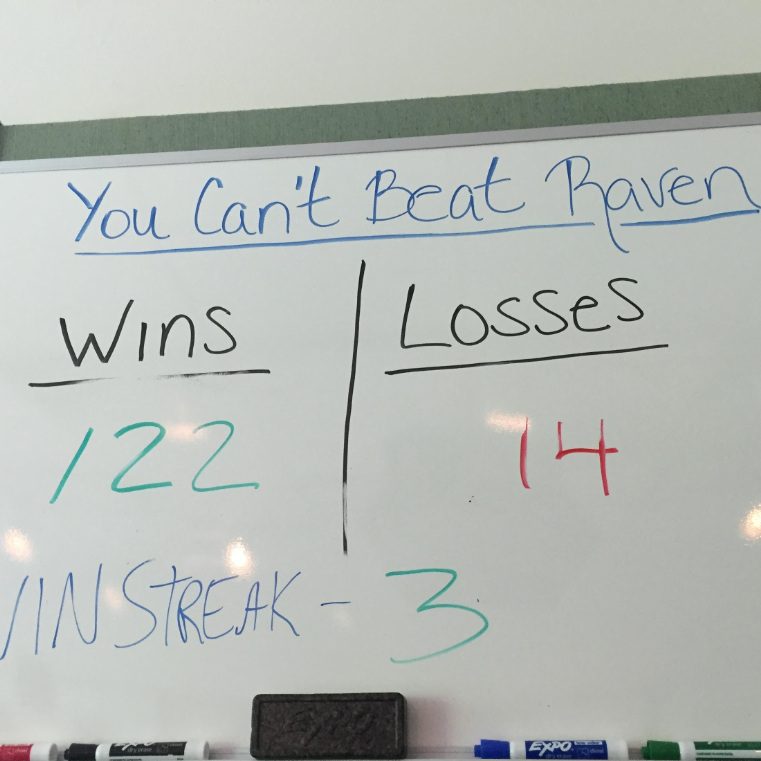 You Can't Beat Raven
Wins Losses
122 14
WINSTREAK - 3
EXPO
EXPO